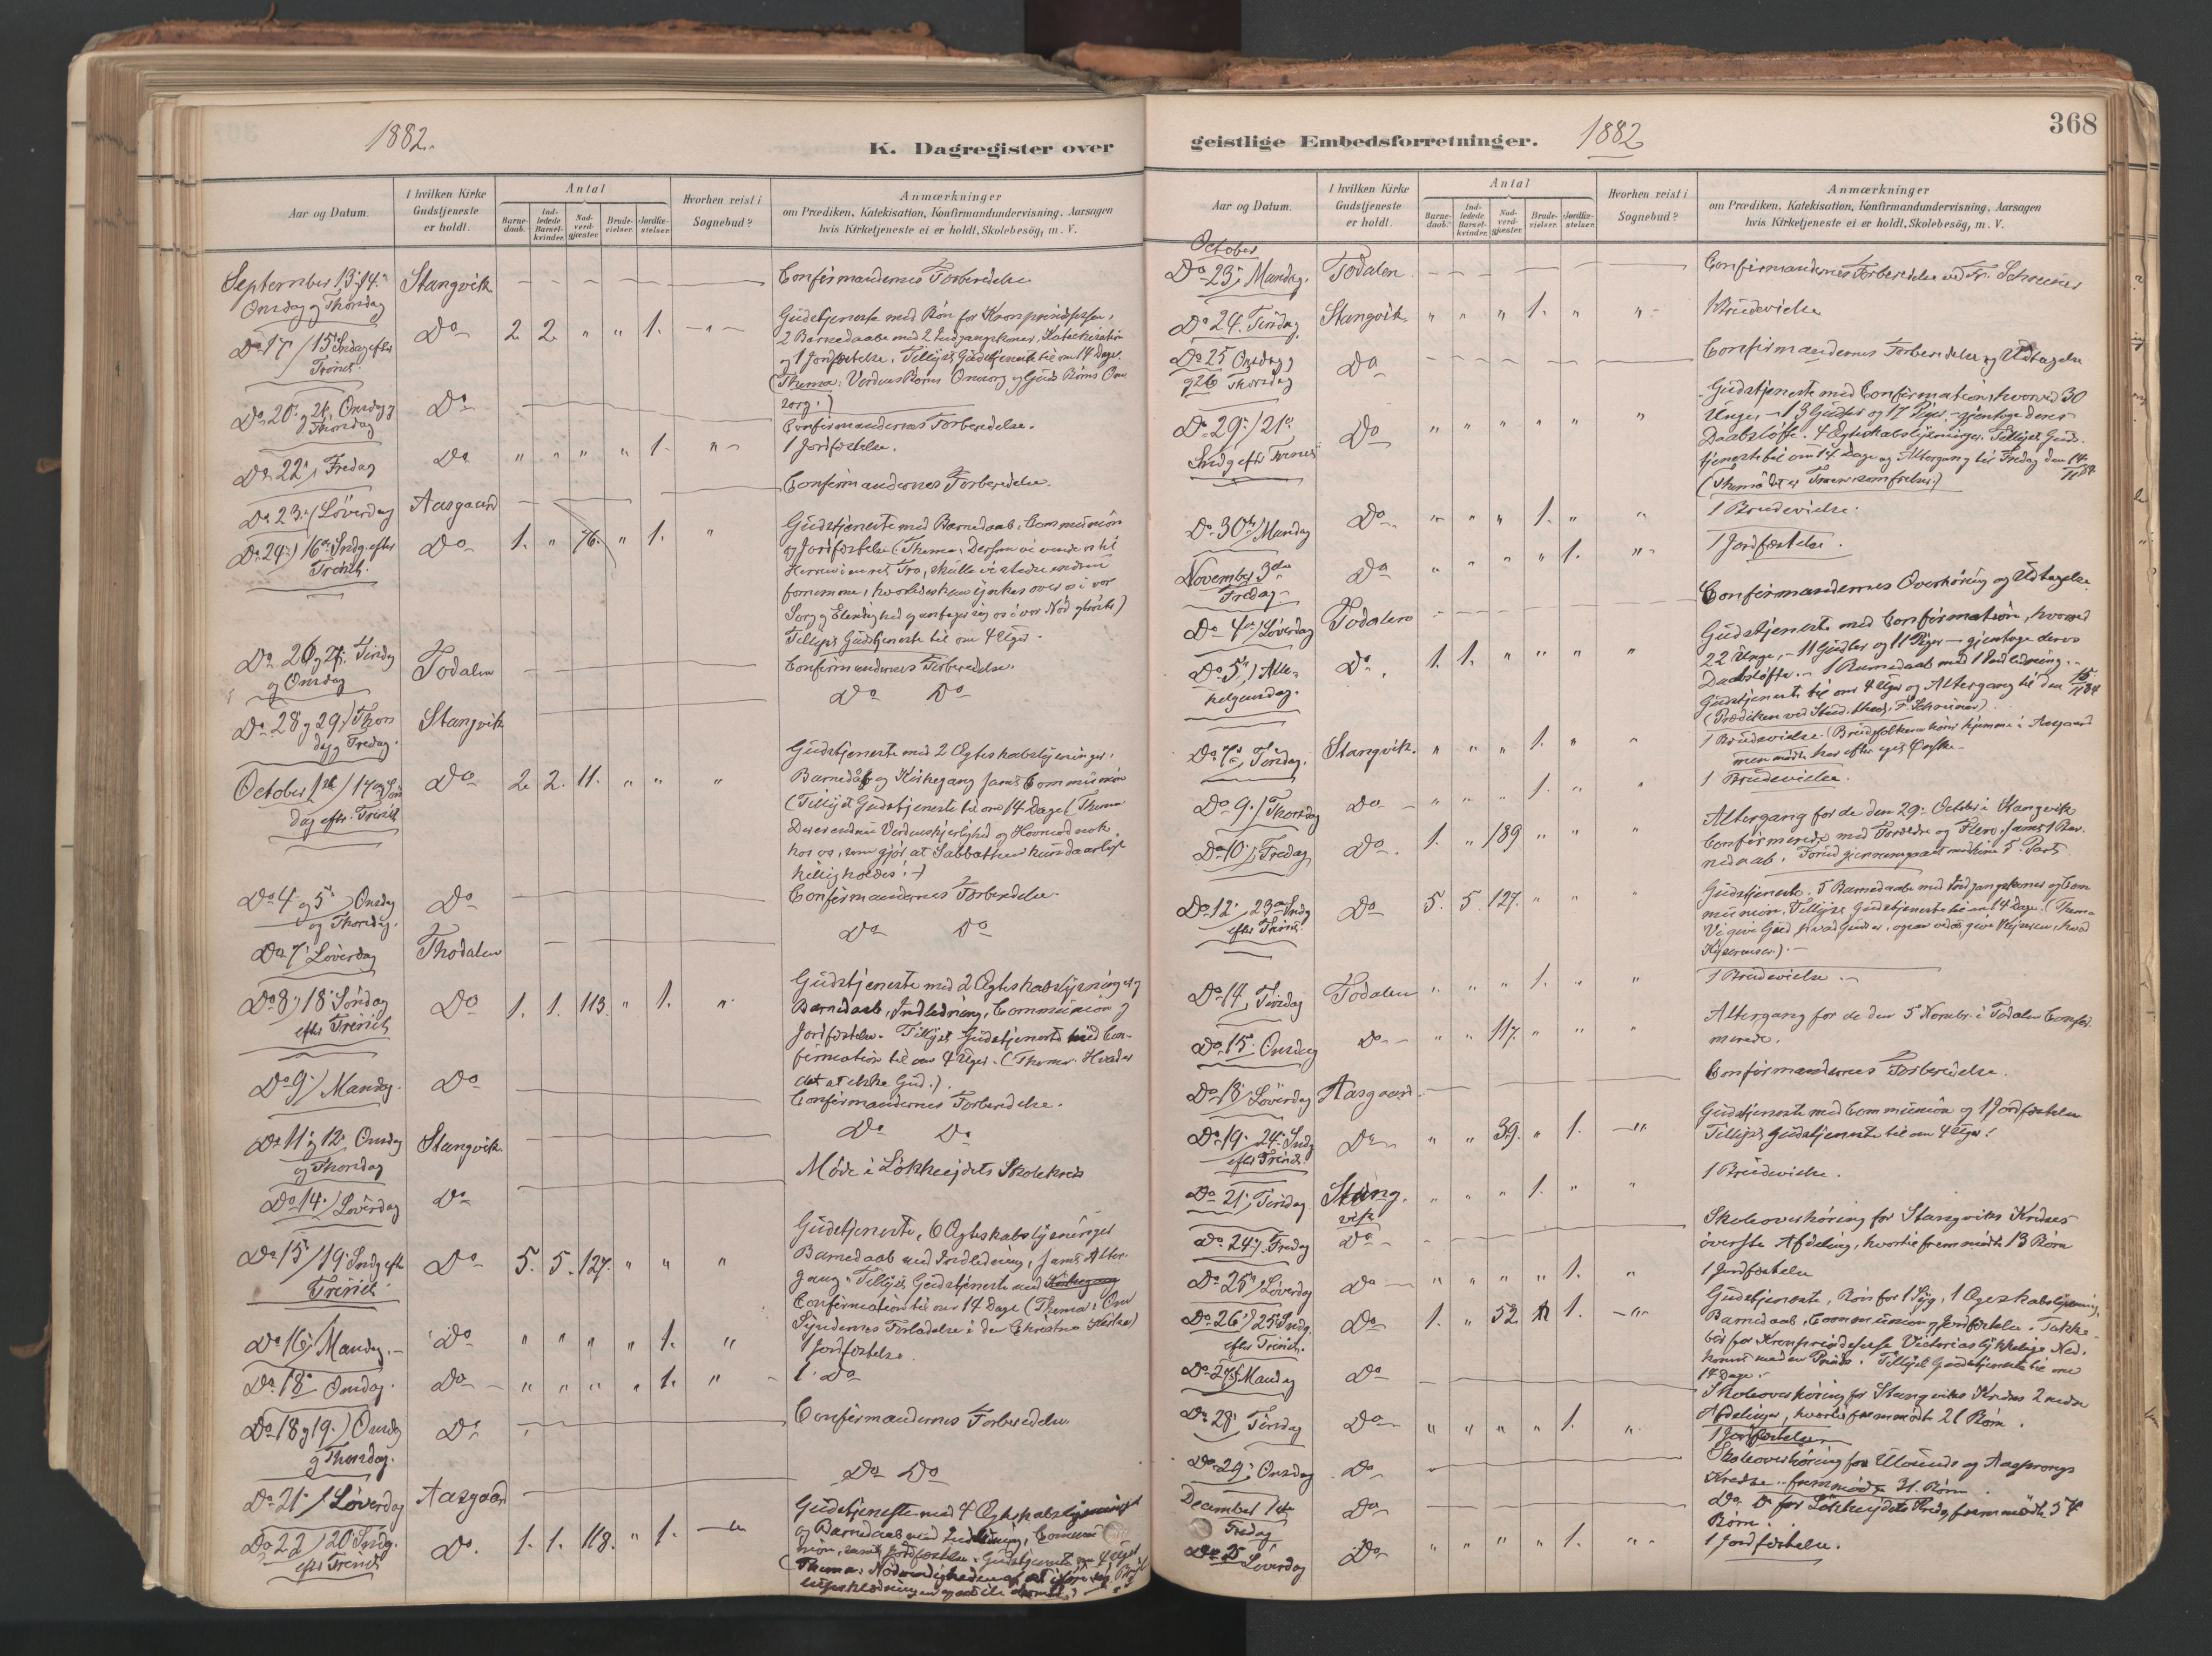 1882.
K. Dagregister over
Aar og Datum.
I hvilken Kirke
Gudstjeneste
er holdt.
Antal
Barne-
daab.
Ind-
ledede
Barsel-
kvinder.
Nad-
verd-
gjæster.
Brude-
vielser.
Jordfæ-
stelser.
Hvorhen reist i
Sognebud?
Anmærkninger
om Prædiken, Katekisation, Konfirmandundervisning, Aarsagen
hvis Kirketjeneste ei er holdt, Skolebesøg, m. V.
September 13. 14. Stangvik Confirmandernes Forberedelse
Onsdag og Thorsdag
Do 17 / 15 Søndag efter Do 2. 2. " " 1. Gudstjeneste med Bøn for Kronprindsessen,
Trinit. 2 Barnedaab med 2 Indgangskoner, Katekisation
og 1 Jordfæstelse. Tillyst Gudstjeneste til om 14 Dage.
(Thema: Verdens Børns Omsorg og Guds Børns Om-
sorg.)
Do 20. og 21. Onsdag og Do Confirmandernes Forberedelse.
Thorsdag
Do 22. Fredag Do " " " " 1. " 1 Jordfæstelse.
Do 23. Løverdag Aasgaard Confirmandernes Forberedelse.
Do 24. / 16de Søndg. efter Do 1. " 76. " 1. " Gudstjeneste med Barnedaab, Communion
Trinit. og Jordfæstelse (Thema: Dersom vi vende os til
Herren i en ret Tro, skulle vi stedse endnu
fornemme, hvorledes han ynkes over os i vor
Sorg og Elendighed og antager sig os i vor Nød)
Tillyst Gudstjeneste til om 4 Uger.
Do 26 og 27. Tirsdag Todalen Confirmandernes Forberedelse
og Onsdag
Do 28 og 29. Thors Stangvik Do Do
dag og Fredag.
October 1ste / 17de Søn Do 2. 2. 11. " " " Gudstjeneste med 2 Ægteskabslysninger,
dag efter Trinit Barnedåb og Kirkegang samt Communion
(Tillyst Gudstjeneste til om 14 Dage (Thema
Det er endnu Verdenskjerlighed og Hovmod nok
hos os, som gjør, at Sabbathen kun daarligt
helligholdes.)
Do 4 og 5 Onsdag Do Confirmandernes Forberedelse
og Thorsdag.
Do 7. Løverdag Thodalen Do Do
Do 8. / 18. Søndag Do 1. 1. 113. " 1. " Gudstjeneste med 2 Ægteskabslysninger og
efter Trinit Barnedaab, Indledning, Communion og
Jordfæstelse. Tillyst Gudstjeneste med Con-
firmation til om 4 Uger. (Thema: Hvad er
det at elske Gud.)
Do 9. Mandag. Do Confirmandernes Forberedelse.
Do 11. og 12. Onsdag Stangvik. Do Do
og Thorsdag
Do 14. Løverdag Do Møde i Løkkeijdets Skolekreds
Do 15 / 19. Søndg. eft Do 5. 5. 127. " " " Gudstjeneste, 6 Ægteskabslysninger
Trinit. Barnedaab med Indledning, samt Alter-
gang. Tillyst Gudstjeneste med
Confirmation til om 14 Dage (Thema: Om
Syndernes Forladelse i den Christne Kirke)
Do 16. Mandag. Do " " " " 1. " 1 Jordfæstelse.
Do 18. Onsdag. Do " " " " 1. " 1. Do
Do 18 og 19. Onsdag Do Confirmandernes Forberedelse
og Thorsdag.
Do 21. Løverdag Aasgaard Do Do
Do 22 / 20. Søndg. Do. 1. 1. 118. " 1. Gudstjeneste med 4 Ægteskabslysninger
efter Trinit og Barnedaab med Indledning, Commu-
nion, samt Jordfæstelse. Gudstjeneste om 4 Uger
(Thema: Nødvendigheden af at iføre sig Bryl
geistlige Embedsforretninger.
1882
368
Aar og Datum.
I hvilken Kirke
Gudstjeneste
er holdt.
Antal
Barne-
daab.
Ind-
ledede
Barsel-
kvinder.
Nad-
verd-
gjæster.
Brude-
vielser.
Jordfæ-
stelser.
Hvorhen reist i
Sognebud?
Anmærkninger
om Prædiken, Katekisation, Konfirmandundervisning, Aarsagen
hvis Kirketjeneste ei er holdt, Skolebesøg, m. V.
October
Do 23. Mandag. Todalen Confirmandernes Forberedelse ved Fr. Schreiner
Do 24. Tirsdag Stangvik. " " " 1. " " 1 Brudevielse
Do 25 Onsdag og Do Confirmandernes Forberedelse og Udtagelse
og 26 Thorsdag
Do 29. / 21de Do " " " " " " Gudstjeneste med Confirmation, hvorved 30
Søndg efter Trinit Unge, 13 Gutter og 17 Piger gjentoge deres
Daabsløfte. 4 Ægteskabslysninger. Tillyst Guds-
tjeneste til om 14 Dage og Altergang til Fredag den
Do 30te Mandag Do " " " 1. " " 1 Brudevielse.
November 3die Do " " " " 1. " 1 Jordfæstelse.
Fredag
Do 4de Løverdag Todalen Confirmandernes Overhøring og Udtagelse
Do 5. Alle- Do. 1. 1. " " " " Gudstjeneste med Confirmation, hvorved
helgensdag. 22 Unge, 11 Gutter og 11 Piger gjentoge deres
Daabsløfte. 1 Barnedaab med 1 Indledning.
Gudstjeneste til om 4 Uger og Altergang til den
(Prædiken ved Stud. theol. F. Schreiner)
Do 7de Tirsdag. Stangvik. " " " 1. " " 1 Brudevielse. (Brudefolkene høre hjemme i Aasgaard
men mødte her efter eget Ønske
Do 9. Thorsdag Do " " " 1. " " 1 Brudevielse.
Do 10. Fredag Do 1. " 189 " " " Altergang for de den 29. October i Stangvik
Confirmerede med Forældre og Flere, samt 1 Bar-
nedaab.
Do 12. 23de Søndg Do 5. 5. 127. " " " Gudstjeneste, 5 Barnedaab med Indgangskoner og Com
efter Trinit. munion. Tillyst Gudstjeneste til om 14 Dage. (Thema
Do 14. Tirsdag Todalen " " " 1. " " 1 Brudevielse
Do 15. Onsdag Do " " 117. " " " Altergang for de den 5 Novbr. i Todalen Confir-
merede.
Do 18. Løverdag Aasgaard Confirmandernes Forberedelse.
Do 19. 24. Søndg Do " " 39. " 1. Gudstjeneste med Communion og 1 Jordfæstelse
efter Trinit. Tillyst Gudstjeneste til om 4 Uger.
Do 21. Tirsdag Stang- " " " 1. " " 1 Brudevielse.
vik
Do 24. Fredag Do Skoleoverhøring for Stangviks Kredses
øverste Afdeling, hvortil fremmødte 13 Børn
Do 25. Løverdag Do " " " " 1. " 1 Jordfæstelse
Do 26 / 25. Søndg. Do 1. " 52 " 1. Gudstjeneste, Bøn for 1 Syg, 1 Ægteskabslysning,
efter Trinit. Barnedaab, Communion og Jordfæstelse. Takke-
bøn for Kronprindsesse Victorias lykkelige Ned-
komst med en Prinds. Tillyst Gudstjeneste til om
14 Dage.
Do 27. Mandag Do Skoleoverhøring for Stangviks Kredses 2 nedre
Afdelinger, hvortil fremmødte 21 Børn.
Do 28. Tirsdag Do " " " " 1. " 1 Jordfæstelse
Do 29. Onsdag Do Skoleoverhøring for Ulvunds og
Kredse. fremmødte 31 Børn.
December 1ste Do Do Do for Løkkeijdets Kreds, fremmødte 54
Fredag Børn.
Løverdag Do " " " " 1. " 1 Jordfæstelse.